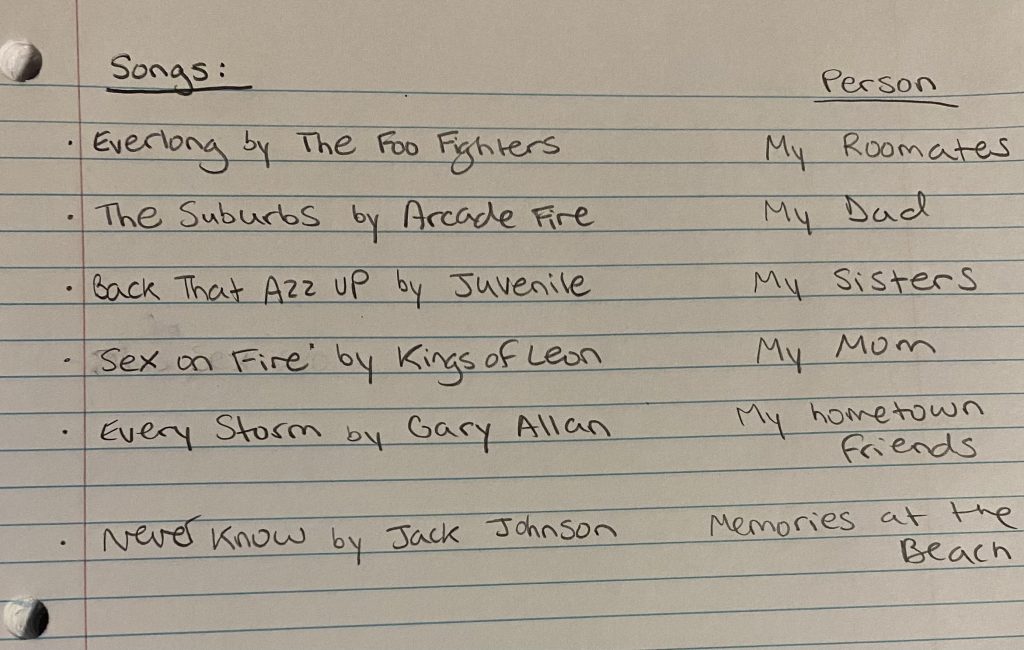 Songs: Person
· Everlong by The Foo Fighters My Roomates
· The Suburbs by Arcade Fire My Dad
· Back That Azz UP by Juvenile My Sisters
· Sex on Fire by Kings of Leon My Mom
· Every Storm by Gary Allan My hometown
friends
· Never Know by Jack Johnson Memories at the
Beach